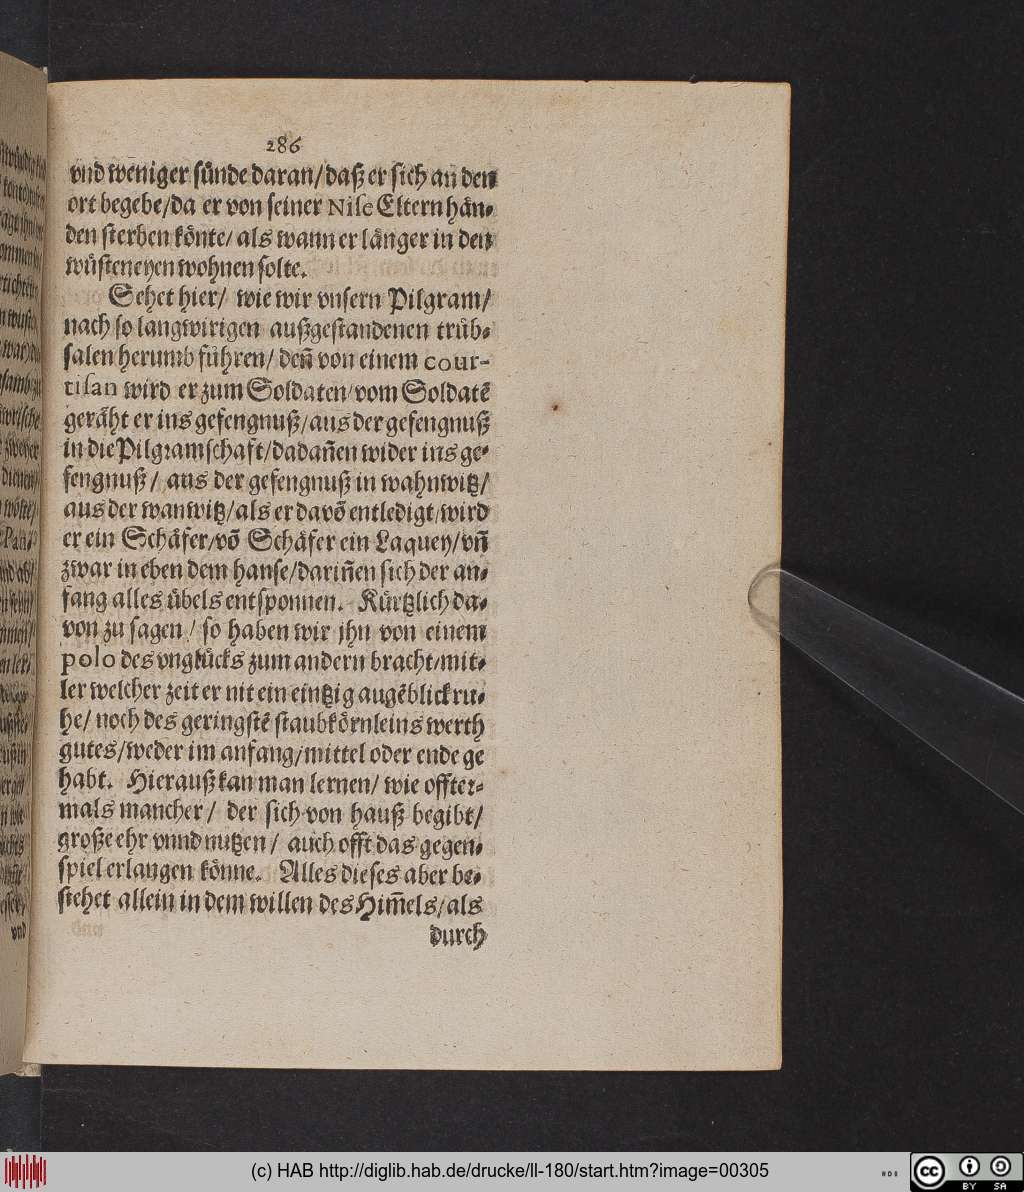 286
vnd weniger sünde daran/daß er sich an den
ort begebe/da er von seiner Nise Eltern hän-
den sterben könte/ als wann er länger in den
wüsteneyen wohnen solte.
Sehet hier/ wie wir vnsern Pilgram/
nach so langwirigen außgestandenen trüb-
salen herumb führen/ deñ von einem cour-
tisan wird er zum Soldaten/vom Soldatẽ
geräht er ins gefengnuß/aus der gefengnuß
in die Pilgramschaft/dadañen wider ins ge-
fengnuß/ aus der gefengnuß in wahnwitz/
aus der wanwitz/als er davõ entledigt/wird
er ein Schäfer/võ Schäfer ein Laquey/vñ
zwar in eben dem hanse/dariñen sich der an-
fang alles übels entsponnen. Kürtzlich da-
von zu sagen/ so haben wir jhn von einem
polo des vnglücks zum andern bracht/mit-
ler welcher zeit er nit ein eintzig augẽblick ru-
he/ noch des geringstẽ staubkörnleins werth
gutes/weder im anfang/mittel oder ende ge
habt. Hierauß kan man lernen/ wie offter-
mals mancher/ der sich von hauß begibt/
große ehr vnnd nutzen/ auch offt das gegen-
spiel erlangen könne. Alles dieses aber be-
stehet allein in dem willen des Him̃els/als
durch
vnd
(c) HAB http://diglib.hab.de/drucke/ll-180/start.htm?image=00305
BY SA